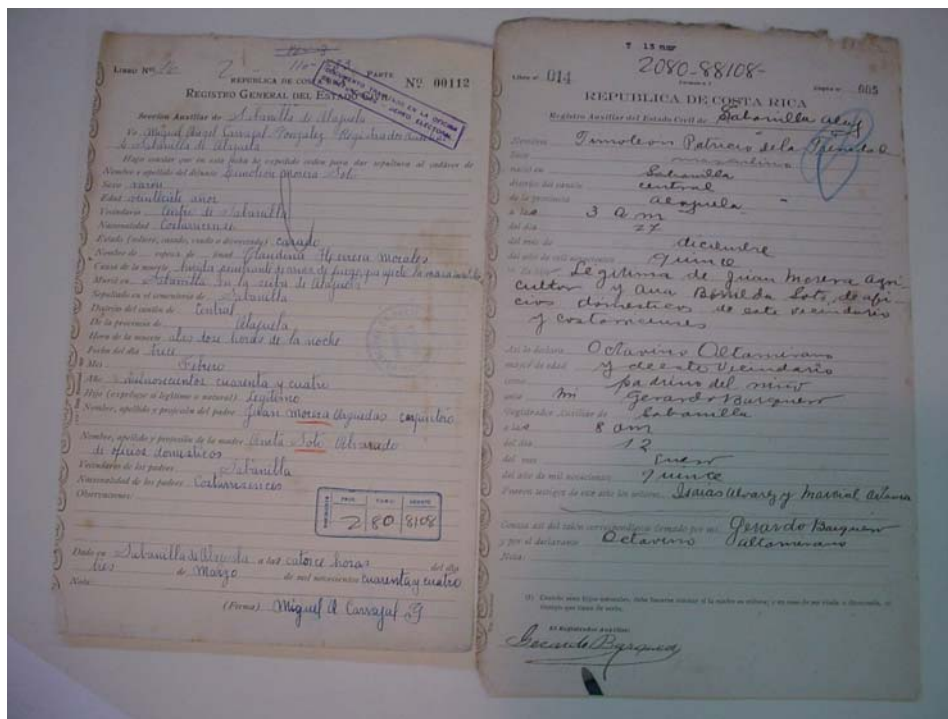 Libro Nº
2
PARTE
Nº 00112
REPUBLICA DE COSTA RICA
REGISTRO GENERAL DEL ESTADO CIVIL
DOCUMENTO TRAMITADO EN LA OFICINA
ELECTORAL
Sección Auxiliar de Sabanilla de Alajuela
Yo, Miguel Angel Carvajal González Registrador Auxiliar
de Sabanilla de Alajuela
Hago constar que en esta fecha he expedido orden para dar sepultura al cadáver de
Nombre y apellido del difunto Timoleón Morera Soto
Sexo varón
Edad veintisiete años
Vecindario Centro de Sabanilla
Nacionalidad Costarricense
Estado (soltero, casado, viudo o divorciado) casado
Nombre de Claudina Herrera Morales
Causa de la muerte herida penetrante de arma de fuego
Murió en Sabanilla de Alajuela
Sepultado en el cementerio de Sabanilla
Distrito del cantón de Central
De la provincia de Alajuela
Hora de la muerte a las doce horas de la noche
Fecha del día trece
Mes Febrero
Año cuarenta y cuatro
Hijo (exprésese si legítimo o natural) Legítimo
Nombre, apellido y profesión del padre Juan Morera carpintero
Nombre, apellido y profesión de la madre Soto Alvarado
de oficios domésticos
Vecindario de los padres Sabanilla
Nacionalidad de los padres Costarricences
Observaciones:
PROV. TOMO ASIENTO
2 80 8108
Dado en Sabanilla de Alajuela a las catorce horas del día
tres de Marzo de mil novecientos cuarenta y cuatro
Nota:
(Firma) Miguel A Carvajal G
2080-88108-
Libro nº 014
REPUBLICA DE COSTA RICA
Registro Auxiliar del Estado Civil de Sabanilla Alaj
Nombre Timoleon Patricio de la Trinidad
Sexo masculino
nació en Sabanilla
distrito del cantón central
de la provincia Alajuela
a las 3 a m
del día 27
del mes de diciembre
del año de mil novecientos quince
Es hijo Legitimo de Juan Morera Agri-
cultor y Ana Soto, de ofi-
cios domesticos de este vecindario
y costarricenses
Así lo declara Octavino Altamirano
mayor de edad y de este Vecindario
como padrino del niño
ante mi Gerardo Barquero
Registrador Auxiliar de Sabanilla
a las 8 am
del día 12
del mes Enero
del año de mil novecientos quince
Fueron testigos de este acto los señores Isaias Alvarez y
Consta así del talón correspondiente firmado por mí, Gerardo Barquero
y por el declarante Octavino Altamirano
Nota:
El Registrador Auxiliar:
Gerardo Barquero